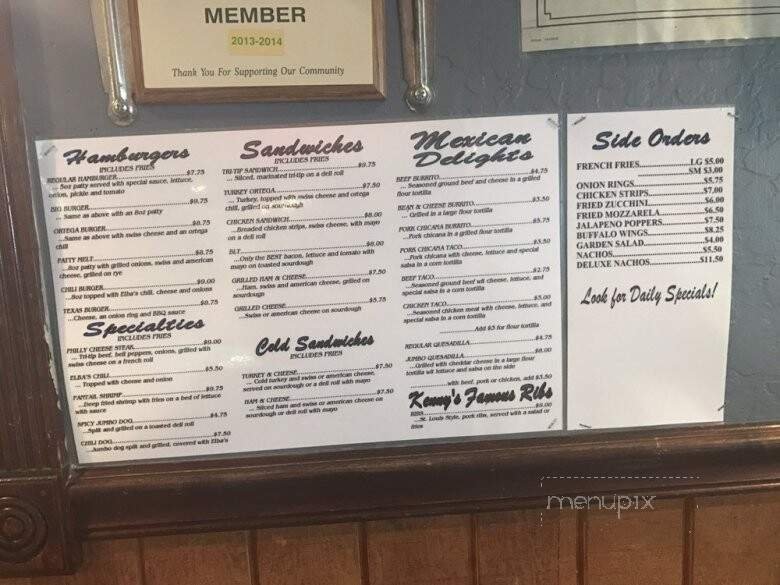 MEMBER
2013-2014
Thank You For Supporting Our Community
Hamburgers
INCLUDES FRIES
REGULAR HAMBURGER $7.75
... 5oz patty served with special sauce, lettuce,
onion, pickle and tomato
BIG BURGER $9.75
... Same as above with an 8oz patty
ORTEGA BURGER $8.75
...Same as above with swiss cheese and an ortega
chili
PATTY MELT $8.75
...8oz patty with grilled onions, swiss and american
cheese, grilled on rye
CHILI BURGER $9.00
...8oz topped with Elba's chili, cheese and onions
TEXAS BURGER $8.75
...Cheese, an onion ring and BBQ sauce
Specialties
INCLUDES FRIES
PHILLY CHEESE STEAK $9.00
... Tri-tip beef, bell peppers, onions, grilled with
swiss cheese on a french roll
ELBA'S CHILI $5.50
... Topped with cheese and onion
FANTAIL SHRIMP $9.75
...Deep fried shrimp with fries on a bed of lettuce
with sauce
SPICY JUMBO DOG $4.75
...Split and grilled on a toasted deli roll
CHILI DOG $7.50
...Jumbo dog split and grilled, covered with Elba's
Sandwiches
INCLUDES FRIES
TRI-TIP SANDWICH $9.75
... Sliced, marinated tri-tip on a deli roll
TURKEY ORTEGA $7.50
... Turkey, topped with swiss cheese and ortega
chili, grilled on sourdough
CHICKEN SANDWICH $8.00
...Breaded chicken strips, swiss cheese, with mayo
on a deli roll
BLT $8.00
...Only the BEST bacon, lettuce and tomato with
mayo on toasted sourdough
GRILLED HAM & CHEESE $7.50
...Ham, swiss and american cheese, grilled on
sourdough
GRILLED CHEESE $5.75
...Swiss or american cheese on sourdough
Cold Sandwiches
INCLUDES FRIES
TURKEY & CHEESE $7.50
... Cold turkey and swiss or american cheese,
served on sourdough or a deli roll with mayo
HAM & CHEESE $7.50
... Sliced ham and swiss or american cheese on
sourdough or a deli roll with mayo
Mexican
Delights
BEEF BURRITO $4.75
... Seasoned ground beef and cheese in a grilled
flour tortilla
BEAN & CHEESE BURRITO $3.50
... Grilled in a large flour tortilla
PORK CHICANA BURRITO $5.75
...Pork chicana in a grilled flour tortilla
PORK CHICANA TACO $3.50
...Pork chicana with cheese, lettuce and special
salsa in a corn tortilla
BEEF TACO $2.75
...Seasoned ground beef wit cheese, lettuce, and
special salsa in a corn tortilla
CHICKEN TACO $3.00
...Seasoned chicken meat with cheese, lettuce, and
special salsa in a corn tortilla
Add $3 for flour tortilla
REGULAR QUESADILLA $4.75
JUMBO QUESADILLA $8.00
...Grilled with cheddar cheese in a large flour
tortilla wit lettuce and salsa on the side
with beef, pork or chicken, add $3.50
Kenny's Famous Ribs
RIBS $9.00
...St. Louis Style, pork ribs, served with a salad or
fries
Side Orders
FRENCH FRIES LG $5.00
SM $3.00
ONION RINGS $5.75
CHICKEN STRIPS $7.00
FRIED ZUCCHINI $6.00
FRIED MOZZARELA $6.50
JALAPENO POPPERS $7.50
BUFFALO WINGS $8.25
GARDEN SALAD $4.00
NACHOS $5.50
DELUXE NACHOS $11.50
Look for Daily Specials!
menupix